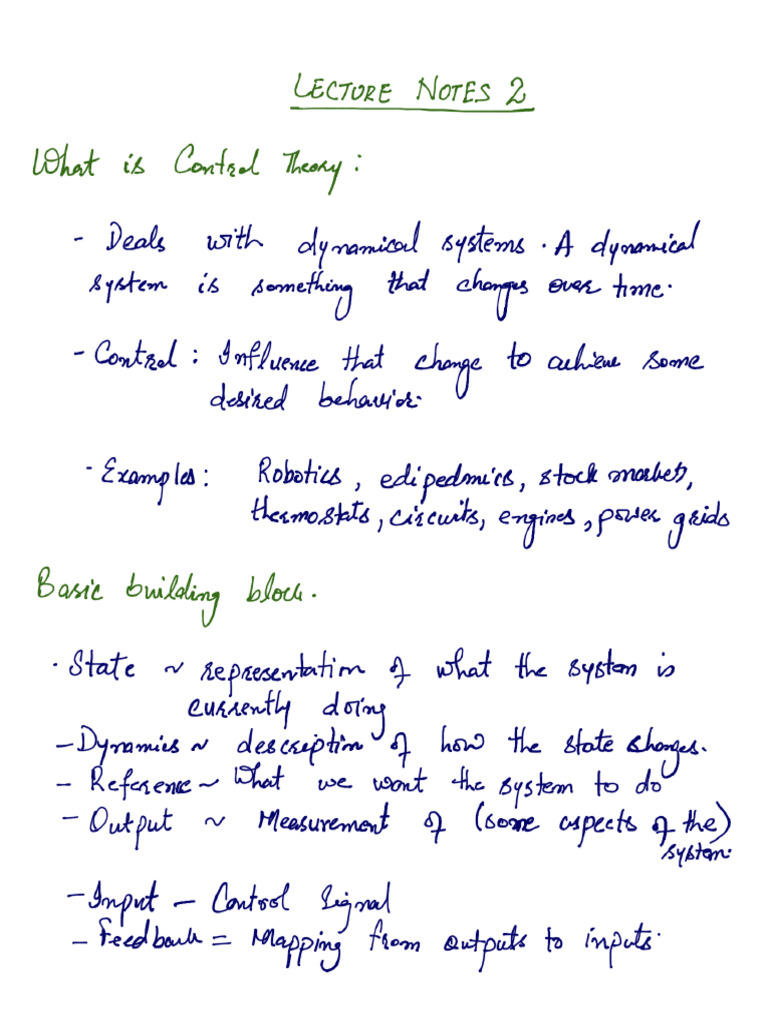 LECTURE NOTES 2
What is Control Theory:
- Deals with dynamical systems. A dynamical
system is something that changes over time.
- Control: Influence that change to achieve some
desired behavior.
- Examples: Robotics, edipedmics, stock markets,
thermostats, circuits, engines, power grids
Basic building block.
· State ~ representation of what the system is
currently doing
- Dynamics ~ description of how the state changes.
- Reference ~ What we want the system to do
- Output ~ Measurement of (some aspects of the)
system.
- Input - Control Signal
- Feedback = Mapping from outputs to inputs.